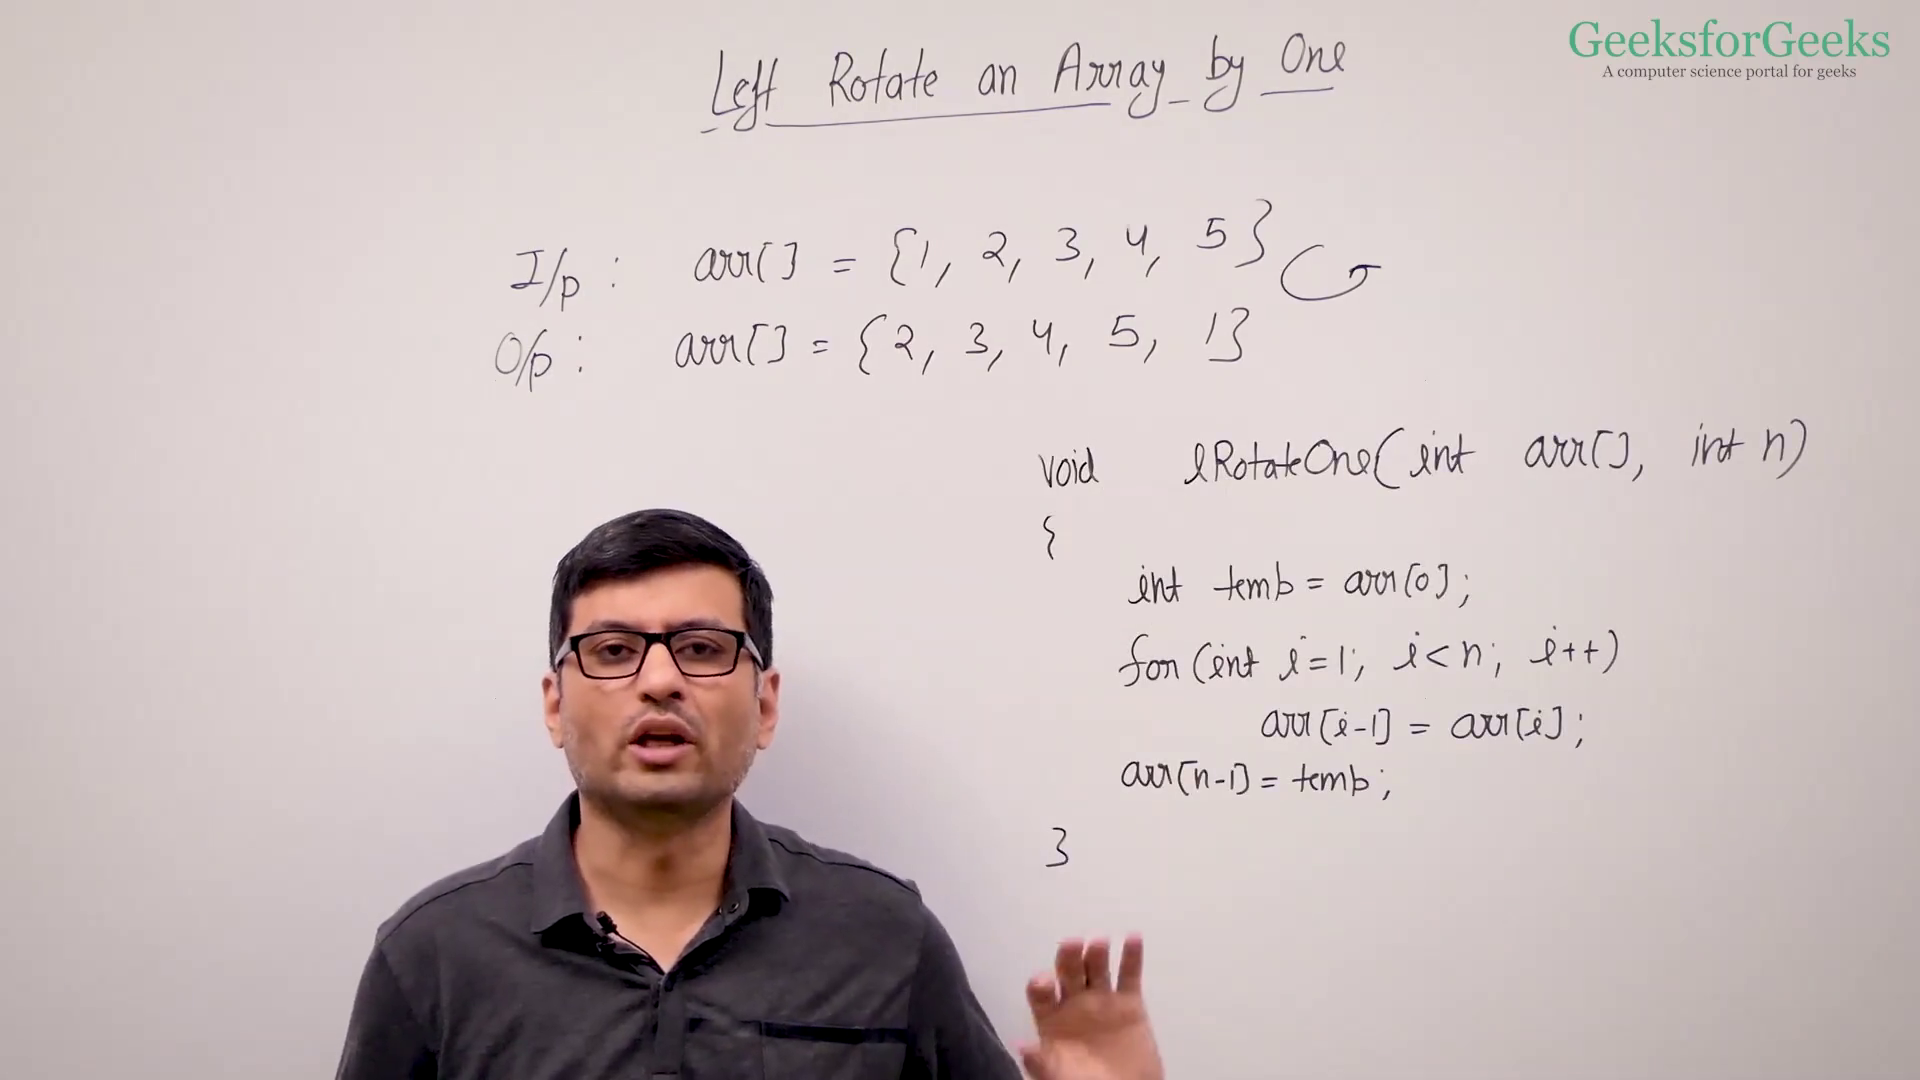 GeeksforGeeks
A computer science portal for geeks
Left Rotate an Array by One
I/p : arr[] = {1, 2, 3, 4, 5}
O/p : arr[] = {2, 3, 4, 5, 1}
void lRotateOne(int arr[], int n)
{
int temp = arr[0];
for (int i=1; i<n; i++)
arr[i-1] = arr[i];
arr[n-1] = temp;
}